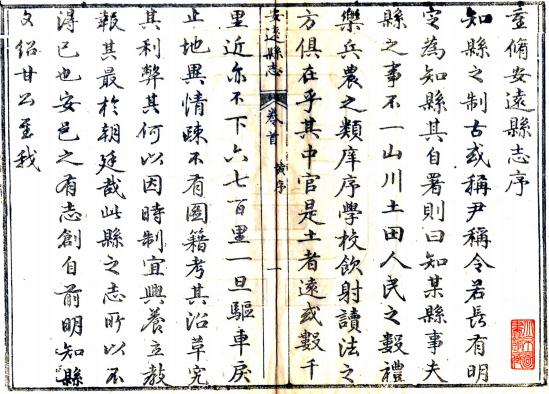 重脩安遠縣志序
知縣之制古或稱尹稱令若長有明
定為知縣其自署則曰知某縣事夫
縣之事不一山川土田人民之數禮
樂兵農之類庠序學校飲射讀法之
方俱在乎其中官是土者遠或數千
安遠縣志
卷首
黄序
一
里近亦不下六七百里一旦驅車戾
止地異情踈不有圖籍考其沿革究
其利弊其何以因時制宜興養立教
報其最於朝廷哉此縣之志所以不
得已也安邑之有志創自前明知縣
文紹甘公至我